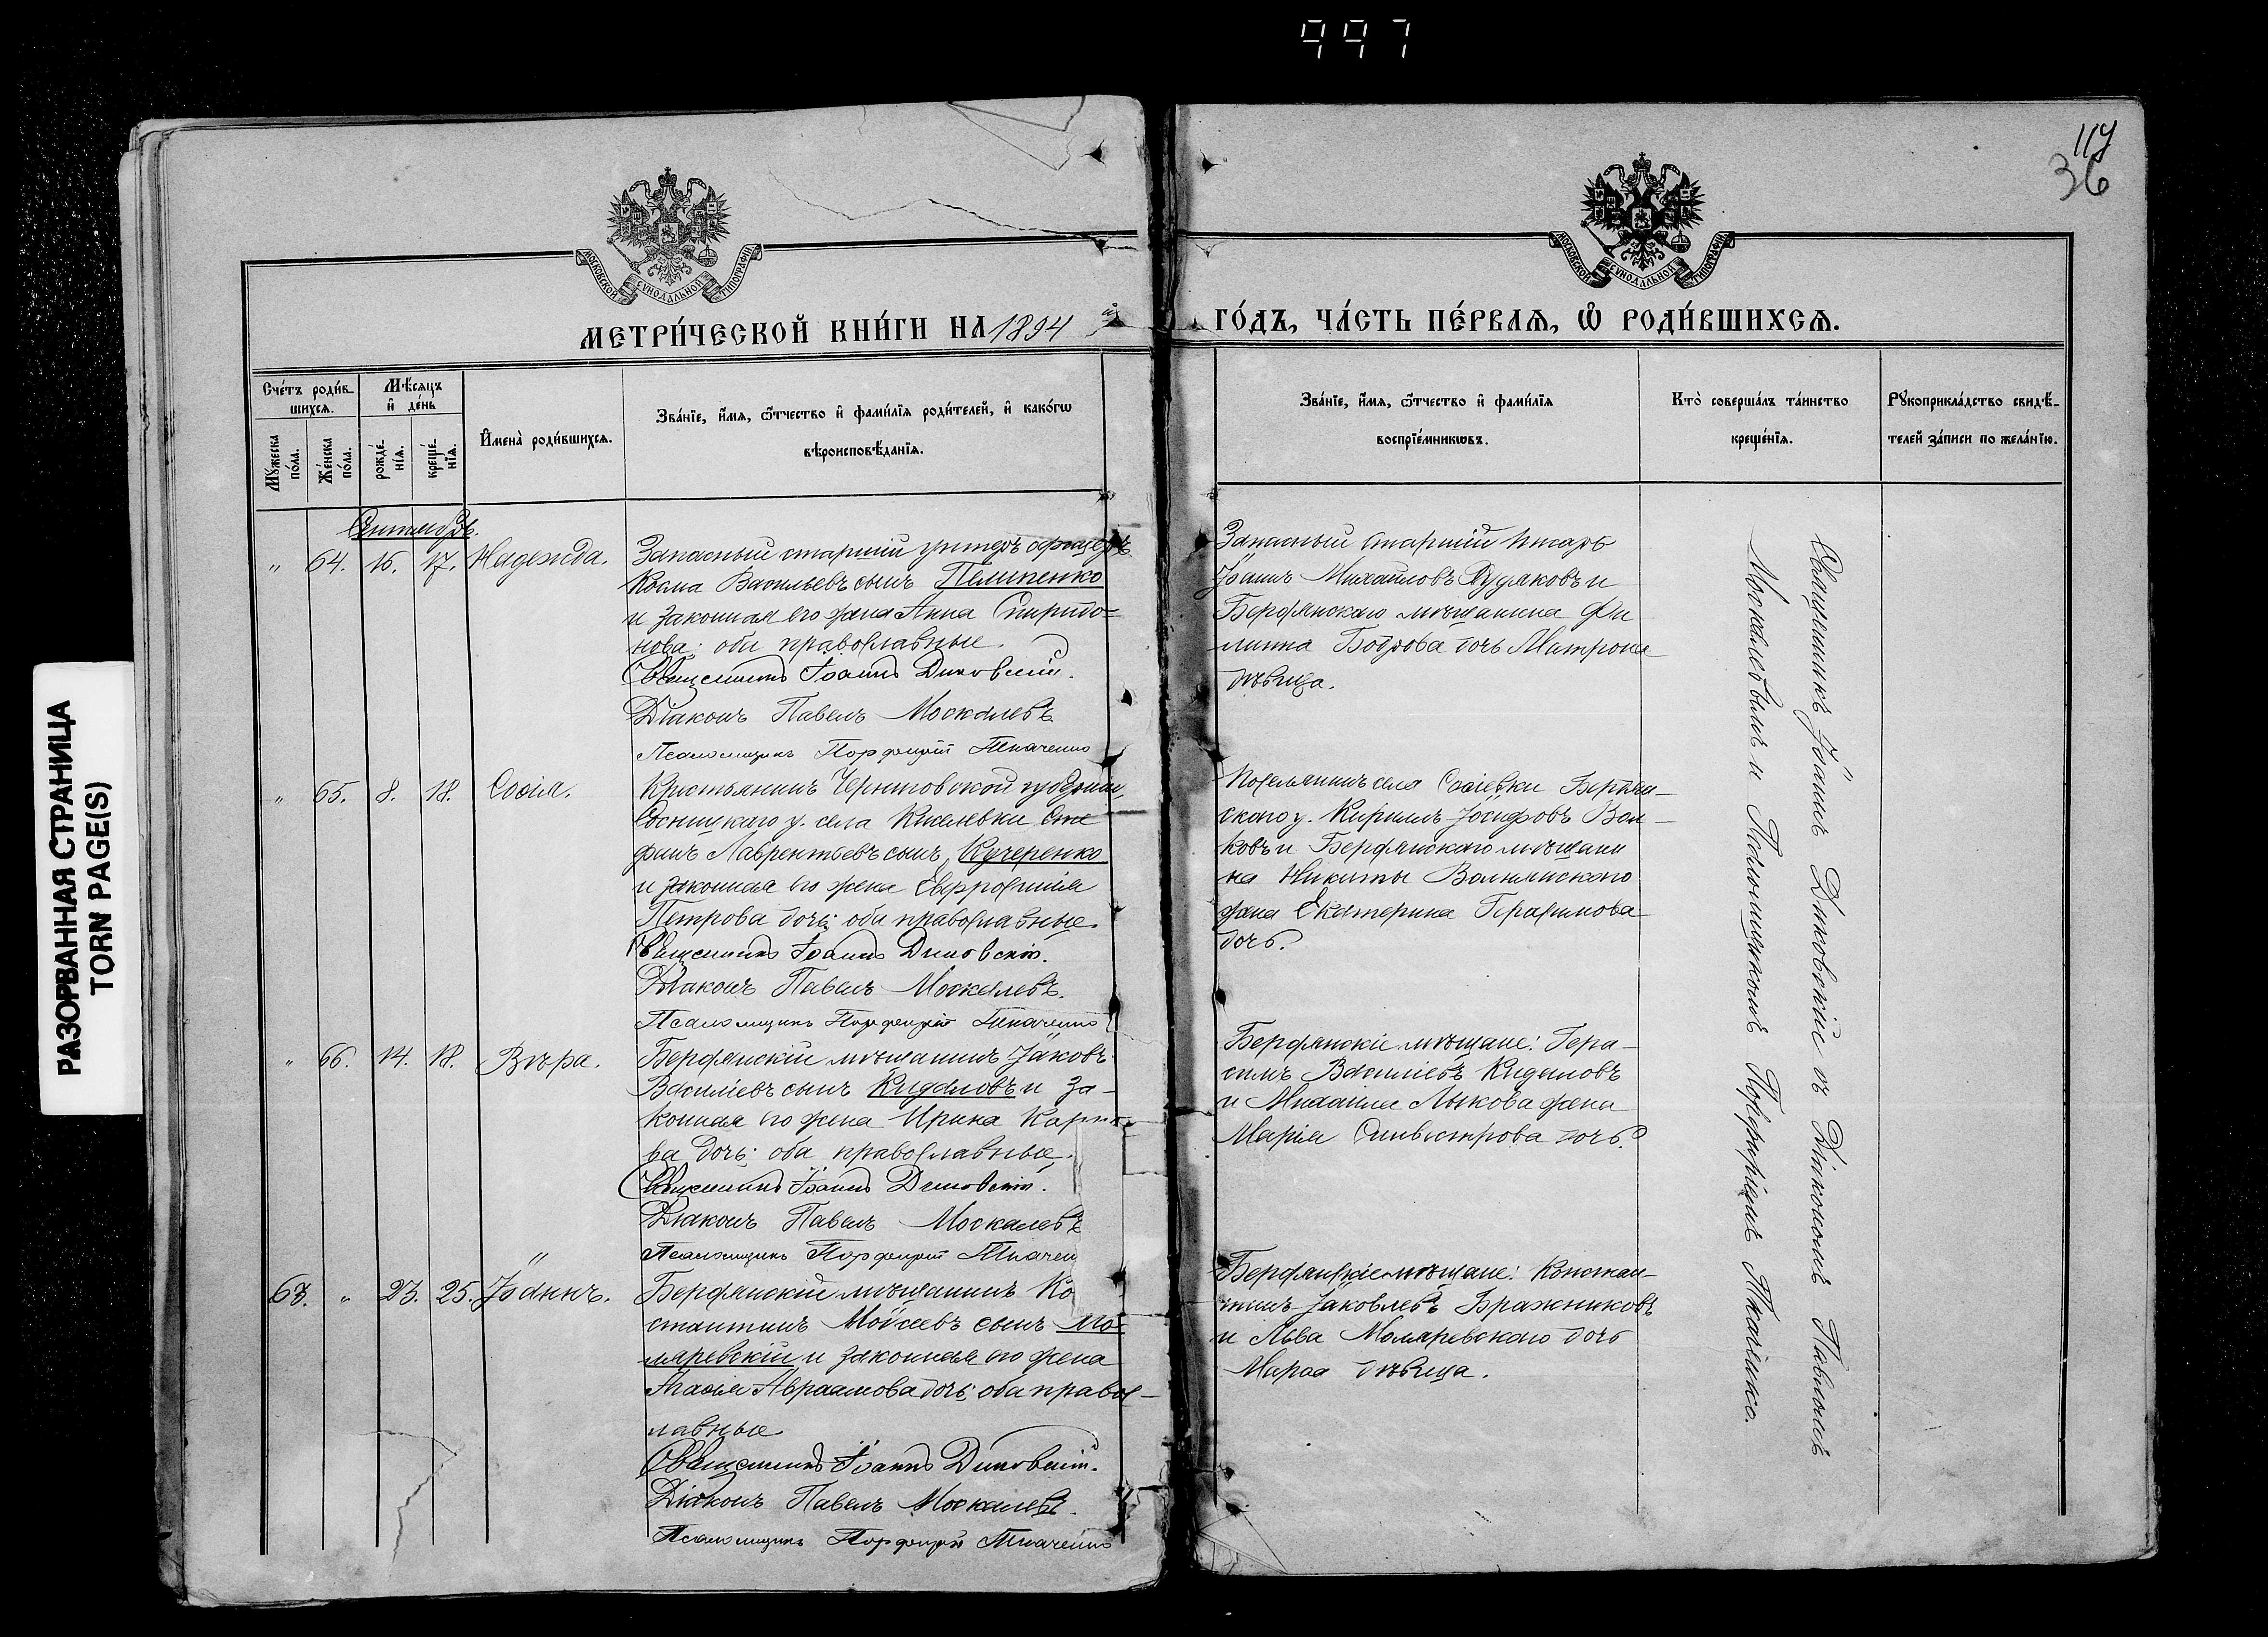 997
117
36
РАЗОРВАННАЯ СТРАНИЦА
TORN PAGE(S)
МОСКОВСКОЙ СУНОДАЛЬНОЙ ТИПОГРАФІИ
МОСКОВСКОЙ СУНОДАЛЬНОЙ ТИПОГРАФІИ
МЕТРИ́ЧЕСКОЙ КНИ́ГИ НА 1894 й
ГО́ДЪ, ЧА́СТЬ ПЕ́РВАѦ, Ѡ РОДИ́ВШИХСѦ.
Сче́тъ роди́в-
шихсѧ.
Мꙋжеска по́ла.
Же́нска по́ла.
Мѣ́сѧцъ
и де́нь
рожде́-
нїѧ.
креще́-
нїѧ.
Имена̀ роди́вшихсѧ.
Зва́нїе, и́мѧ, ѻ́тчество и фами́лїѧ роди́телей, и како́гѡ
вѣроисповѣ́данїѧ.
Зва́нїе, и́мѧ, ѻ́тчество и фами́лїѧ
воспрїе́мникѡвъ.
Кто̀ соверша́лъ та́инство
креще́нїѧ.
Рꙋкоприкла́дство свидѣ́-
телей за́писи по жела́нїю.
Сентябрь.
" 64. 16. 17. Надежда.
Запасный старшій унтеръ офицеръ
Косма Васильевъ сынъ Пелипенко
и законная его жена Анна Спиридо-
нова; оби православные.
Священникъ Іоаннъ Диковскій.
Діаконъ Павелъ Москалевъ
Псаломщикъ Порфирій Ткаченко
Запасный старшій писарь
Іоаннъ Михайловъ Дудаковъ и
Бердянскаго мѣщанина Фи
липпа Бодрова дочь Матрона
дѣвица.
" 65. 8. 18. Софія.
Крестьянинъ Черниговской губерніи
Сосницкаго у. села Киселевки Сте
фанъ Лаврентьевъ сынъ Кучеренко
и законная его жена Евфросинія
Петрова дочь; оби православные.
Священникъ Іоаннъ Диковскій.
Діаконъ Павелъ Москалевъ.
Псаломщикъ Порфирій Ткаченко
Поселянинъ села Софіевки Бердян-
скаго у. Кирилъ Іосифовъ Вол-
ковъ и Бердянскаго мѣщани
на Никиты Волнянскаго
жена Екатерина Герасимова
дочь.
" 66. 14. 18. Вѣра.
Бердянскій мѣщанинъ Іаковъ
Василіевъ сынъ Кидаловъ и за-
конная его жена Ирина Карпо
ва дочь; оба православные.
Священникъ Іоаннъ Диковскій.
Діаконъ Павелъ Москалевъ
Псаломщикъ Порфирій Ткачен
Бердянскіе мѣщане: Гера-
симъ Василіевъ Кидаловъ
и Михаила Лыкова жена
Марія Сильвестрова дочь.
68. " 23. 25. Іоаннъ.
Бердянскій мѣщанинъ Ко
стантинъ Моѵсеевъ сынъ Мо-
ляревскій и законная его жена
Агафія Авраамова дочь; оба правос-
лавные
Священникъ Іоаннъ Диковскій.
Діаконъ Павелъ Москалевъ.
Псаломщикъ Порфирій Ткаченко
Бердянскіе мѣщане: Констан-
тинъ Іаковлевъ Бражниковъ
и Льва Моляревскаго дочь
Марфа дѣвица.
Священникъ Іоаннъ Диковскій съ Діакономъ Павломъ
Москалевымъ и Псаломщикомъ Порфиріемъ Ткаченко.